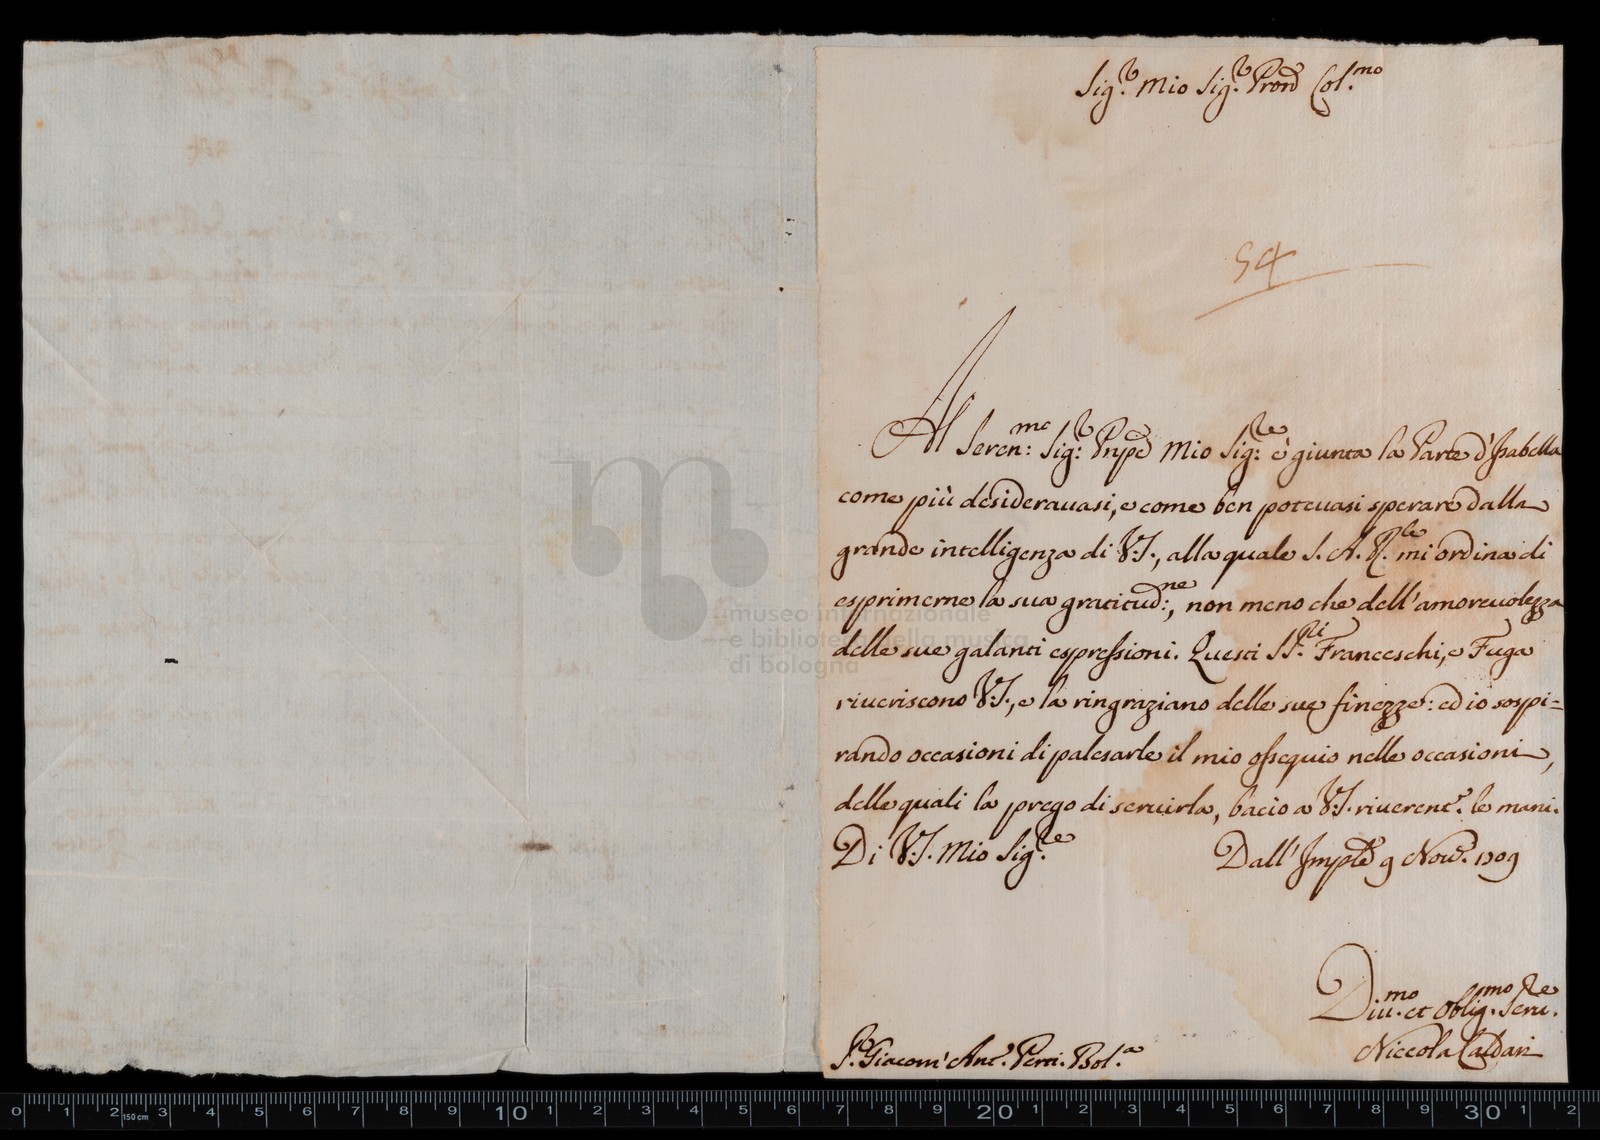 Sig.r Mio Sig.r Pron Col.mo
54
Al Seren:mo Sig:r Prnpe Mio Sig:re è giunta la Parte d'Isabella
come più desiderauasi, e come ben poteuasi sperare dalla
grande intelligenza di V.S., alla quale S. A. R.le mi ordina di
esprimerne la sua gratitud:ne, non meno che dell'amoreuolezza
delle sue galanti espressioni. Questi SS.ri Franceschi, e Fuga
riueriscono V.S., e la ringraziano delle sue finezze: ed io sospi=
rando occasioni di palesarle il mio ossequio nelle occasioni,
delle quali la prego di seruirla, bacio a V.S. riuerent.e le mani.
Di V.S. Mio Sig.re
Dall' 9 Nou.e 1709
Diu.mo et Oblig.mo Seru.re
Niccola Caldari
S.r Giacom' Ant.o Perti. Bol.a
museo internazionale
e biblioteca della musica
di bologna
0 1 2 150 cm 3 4 5 6 7 8 9 10 1 2 3 4 5 6 7 8 9 20 1 2 3 4 5 6 7 8 9 30 1 2